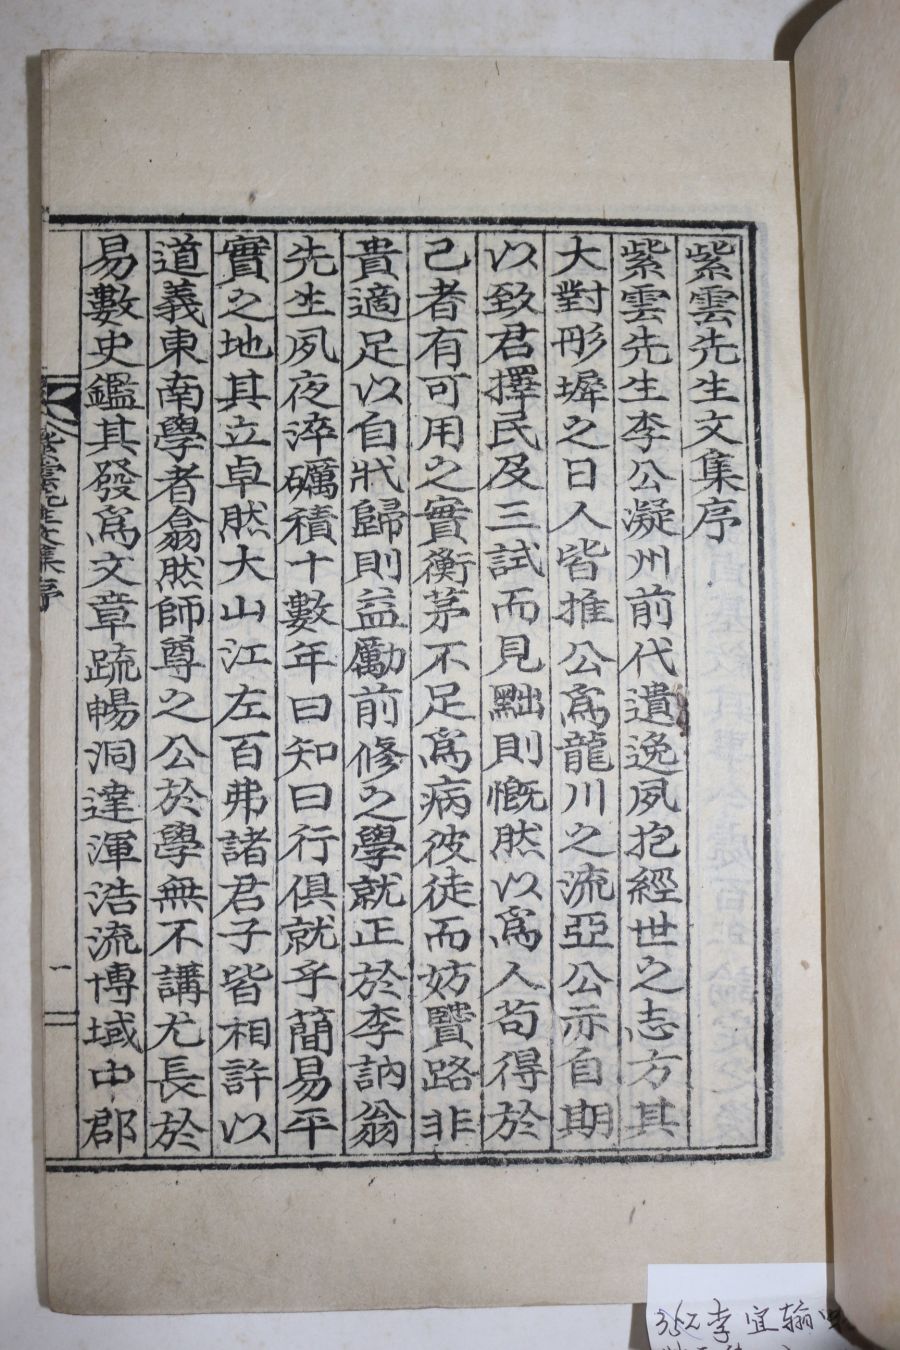 紫雲先生文集序
紫雲先生李公凝州前代遺逸夙抱經世之志方其
大對彤墀之日人皆推公爲龍川之流亞公亦自期
以致君擇民及三試而見黜則慨然以爲人苟得於
己者有可用之實衡茅不足爲病彼徒而妨賢路非
貴適足以自戕歸則益勵前修之學就正於李訥翁
先生夙夜淬礪積十數年曰知曰行俱就乎簡易平
實之地其立卓然大山江左百弗諸君子皆相許以
道義東南學者翕然師尊之公於學無不講尤長於
易數史鑑其發爲文章疏暢洞達渾浩流博域中郡
紫雲先生文集序
一
李宜翰